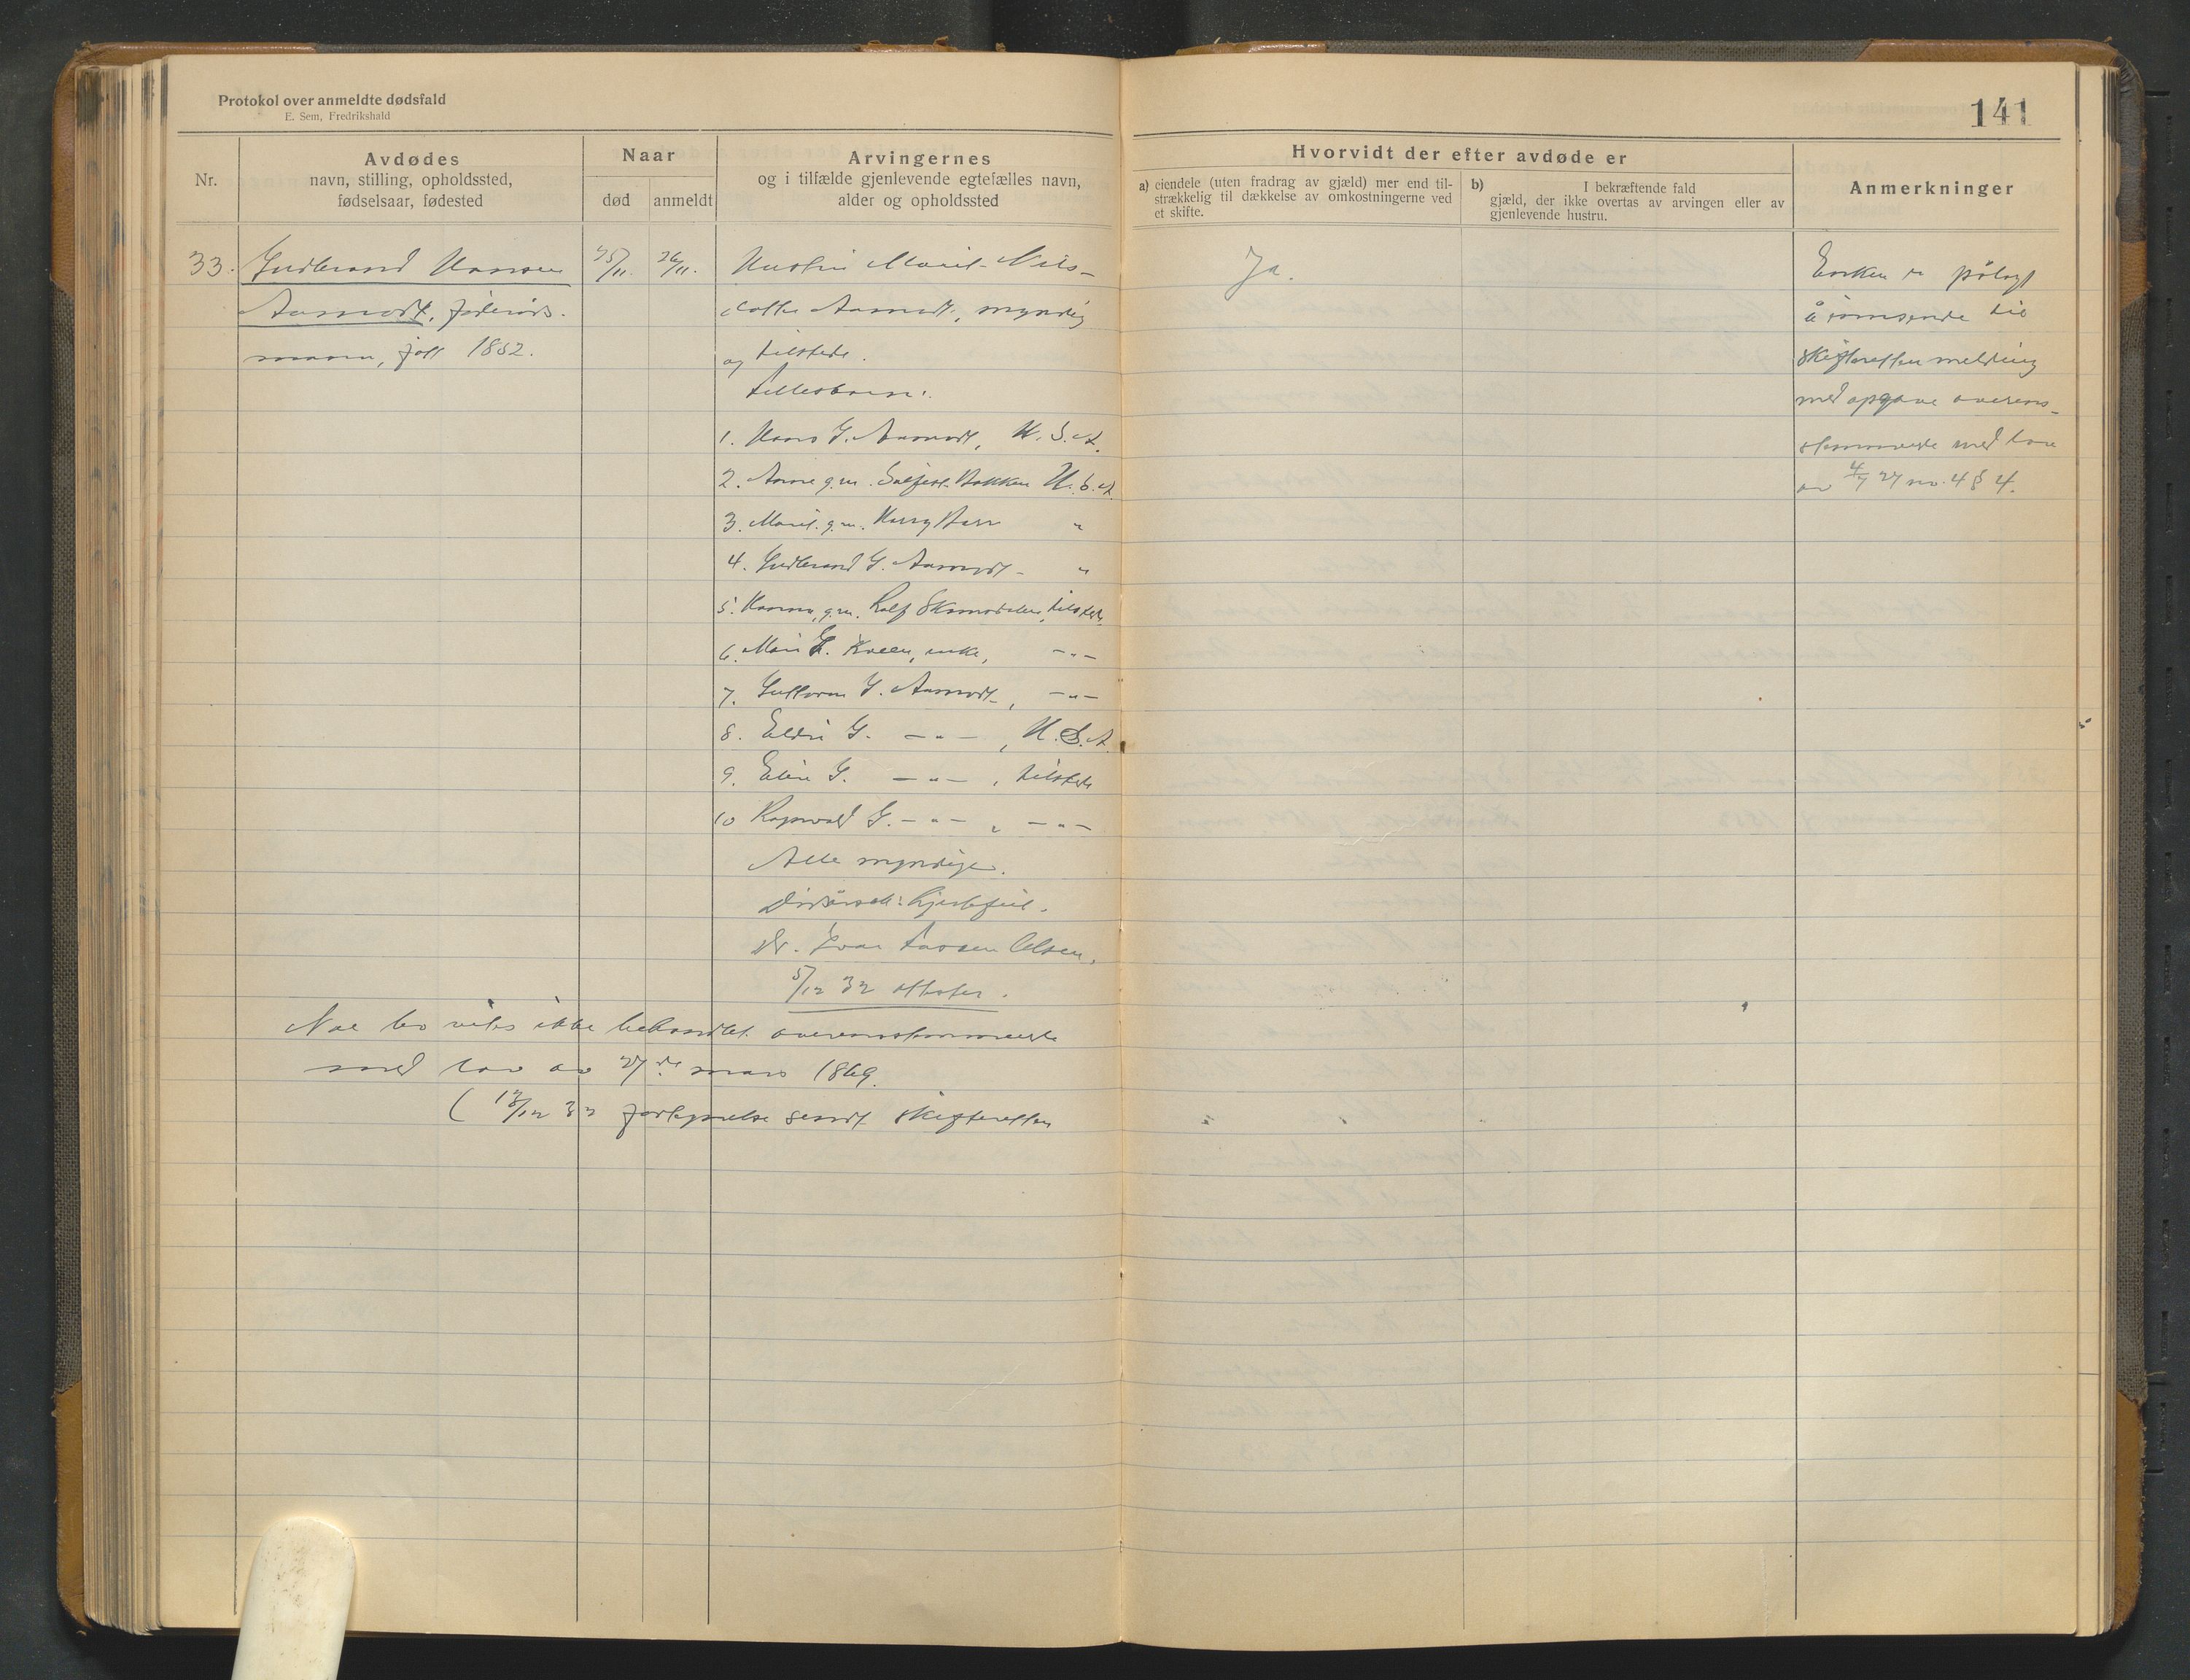 Protokol over anmeldte dødsfald
E. Sem, Fredrikshald
141
Nr.
Avdødes
navn, stilling, opholdssted,
fødselsaar, fødested
Naar
død
anmeldt
Arvingernes
og i tilfælde gjenlevende egtefælles navn,
alder og opholdssted
Hvorvidt der efter avdøde er
a) eiendele (uten fradrag av gjæld) mer end til-
strækkelig til dækkelse av omkostningerne ved
et skifte.
b) I bekræftende fald
gjæld, der ikke overtas av arvingen eller av
gjenlevende hustru.
Anmerkninger
33. Gudbrand Hansen
Aamodt, føderåds-
mann, født 1852.
25/11.
26/11.
Hustru Marit Nils-
datter Aamodt, myndig
og tilstede.
Fellesbarn:
1. Hans G. Aamodt, U.S.A.
2. Anne g.m. Bakken U.S.A.
3. Marit g.m. Harry "
4. Gudbrand G. Aamodt - "
5. Hanna, g.m. Rolf tilstede
6. Mari G. Kveen, enke, -"-
7. Guttorm G. Aamodt, -"-
8. Eldri G. -"- , U.S.A.
9. Eline G. -"- , tilstede
10 Ragnvald G. -"- , -"-
Alle myndige.
Dødsårsak: hjertefeil.
Dr. Ivar Aasen Olsen.
5/12 32 attester.
Nåe bo vites ikke behandlet overensstemmende
med lov av 27de mars 1869.
( 13/12 32 sendt skifteretten
Ja.
Enken er pålagt
å innsende til
skifteretten melding
med opgave overens-
stemmende med lov
av 4/7 27 nr. 4 § 4.